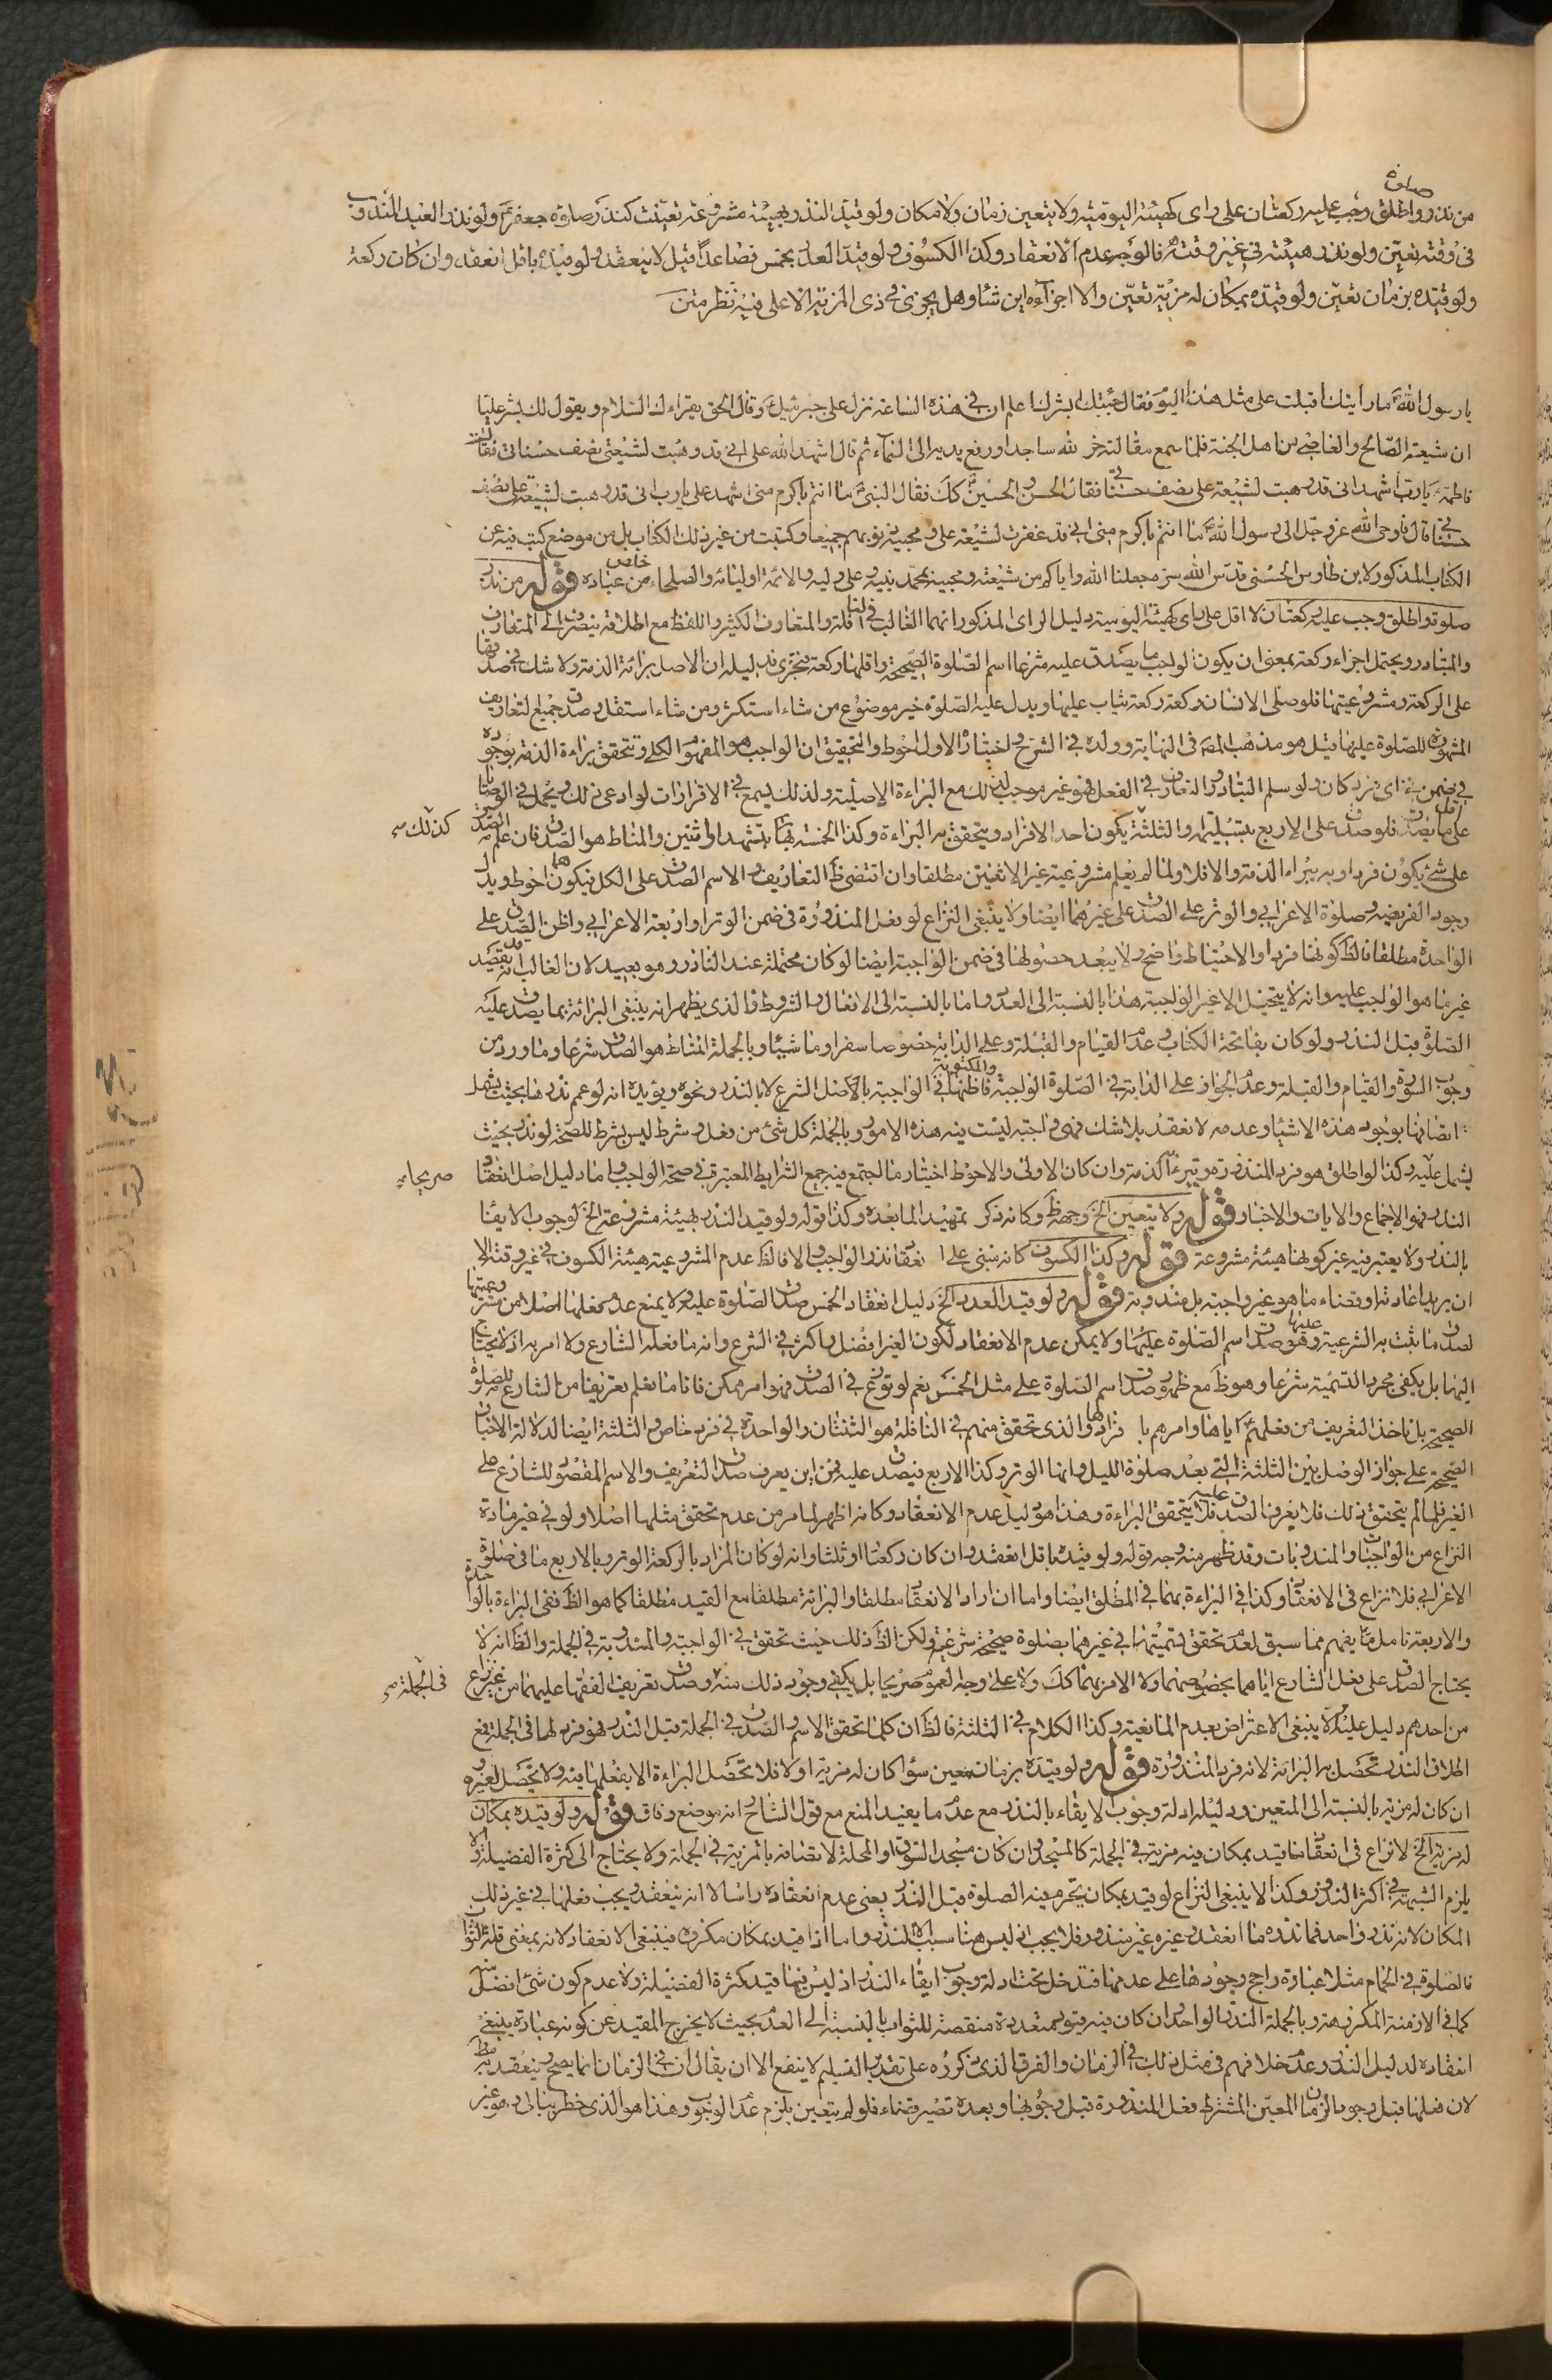 صلوة
من نذر واطلق وجب عليه ركعتان على راى كهيئة اليومية ولا يتعين زمان ولا مكان ولو قيد النذر بهيئة مشروعة تعينت كنذر صلوة جعفر ع ولو نذر العيد المندوب
فى وقته تعين ولو نذر هيئته فى غير وقته فالوجه عدم الانعقاد وكذا الكسوف ولو قيد العدد بخمس فصاعدا قيل لا ينعقد ولو قيده باقل انعقد وان كان ركعة
ولو قيده بزمان تعين ولو قيده بمكان له مزية تعين والا اجزأه اين شاء وهل يجزى فى ذى المزية الاعلى فيه نظر متن
يا رسول الله ما رايتك اقبلت على مثل هذا اليوم فقال جئتك ابشرك اعلم ان فى هذه الساعة نزل على جبرئيل ع وقال الحق يقراء لك السلام ويقول لك بشر عليا
ان شيعته الصالح والعاصى من اهل الجنة فلما سمع مقالته خر لله ساجدا ورفع يديه الى السماء ثم قال اشهد الله على انى قد وهبت لشيعتى نصف حسناتى فقالت
فاطمة ع يا رب اشهد انى قد وهبت لشيعة على نصف حسناتى فقال الحسن والحسين ع كك فقال النبى ص ما انتم باكرم منى اشهد على يا رب انى قد وهبت لشيعة على نصف
حسناتى قال فاوحى الله عز وجل الى رسول الله ص ما انتم باكرم منى انى قد غفرت لشيعة على ومحبيه ذنوبهم جميعا وكتبت من غير ذلك الكتاب بل من موضع كتب فيه عن
الكتاب المذكور لابن طاوس الحسنى قدس الله سره جعلنا الله واياكم من شيعته ومحبيه بمحمد نبيه وعلى وليه والائمة اوليائه والصلحاء من خاص عباده قوله من نذر
صلوة واطلق وجب عليه ركعتان لا اقل على راى كهيئة اليومية دليل الراى المذكور انهما الغالب فى النافلة والمتعارف الكثير واللفظ مع اطلاقه ينصرف الى المتعارف
والمتبادر ويحتمل اجزاء ركعة بمعنى ان يكون الواجب ما يصدق عليه شرعا اسم الصلوة الصحيحة واقلها ركعة فتجزى ودليله ان الاصل برائة الذمة ولا شك فى صدقها
على الركعة ومشروعيتها فلو صلى الانسان ركعة ركعة يثاب عليها ويدل عليه الصلوة خير موضوع من شاء استكثر ومن شاء استقل وصدق جميع تعاريف
المشهورة للصلوة عليها قيل هو مذهب المص فى النهاية وولده فى الشرح واختيار الاول احوط والتحقيق ان الواجب هو المفهوم الكلى وتتحقق براءة الذمة بوجوده
فى ضمن اى فرد كان ولو سلم التبادر والتعارف فى الفعل فهو غير موجب لذلك مع البراءة الاصلية ولذلك يسمع فى الاقرارات لو ادعى ذلك ويحمل فى الوصايا
على اقل ما يصدق فلو صدق على الاربع بتسليمة والثلثة يكون احد الافراد ويتحقق به البراءة وكذا الخمسة بتشهد او اثنين والمناط هو الصدق فان علم الصدق كذلك
على شئ يكون فردا وبه يبراء الذمة والا فلا
وجود الفريضة وصلوة الاعرابى والوتر على الصدق على غيرهما ايضا ولا ينبغى النزاع لو فعل المنذورة فى ضمن الوتر او اربعة الاعرابى واظن الصدق على
الواحدة مطلقا فالظ كونها فردا والاحتياط واضح ولا يبعد حصولها فى ضمن الواجبة ايضا لو كان محتملة عند الناذر وهو بعيد لان الغالب انه يقصد
غير ما هو الواجب عليه وانه لا يتخيل الا غير الواجبة هذا بالنسبة الى العدد واما بالنسبة الى الافعال والشروط فالذى يظهر انه ينبغى البرائة بما يصدق عليه
الصلوة قبل النذر ولو كان بفاتحة الكتاب وعدم القيام والقبلة وعلى الدابة خصوصا سفرا وماشيا وبالجملة المناط هو الصدق شرعا وما ورد من
وجوب السورة والقيام والقبلة وعدم الجواز على الدابة فى الصلوة الواجبة والمكتوبة فاظنها فى الواجبة بالاصل الشرع لا بالنذر ونحوه ويؤيده انه لو عمم نذرها بحيث يشمل
اتصافها بوجود هذه الاشياء وعدمه لانعقد بلا شك فهى واجبة ليست فيه هذه الامور وبالجملة كل شئ من فعل وشرط ليس بشرط للصحة لو نذر بحيث
يشمل عليه وكذا لو اطلق هو فرد المنذورة وتبرء الذمة وان كان الاولى والاحوط اختيار ما اجتمع فيه جميع الشرايط المعتبرة فى صحة الواجب واما دليل اصل انعقاد صريحا
النذر فهو الاجماع والايات والاخبار قوله ولا يتعين الخ وجهه ظ وكانه ذكر تمهيدا لما بعده وكذا قوله ولو قيد النذر بهيئة مشروعة الخ لوجوب الايفاء
بالنذر ولا يعتبر فيه غير كونها هيئة مشروعة قوله وكذا الكسوف كانه مبنى على انعقاد نذر الواجب والا فالظ عدم المشروعية هيئة الكسوف فى غير وقته الا
ان يريد اعادته او قضاء ما هو غير واجبة بل مندوبة قوله ولو قيد العدد الخ دليل انعقاد الخمس صدق الصلوة عليه ولا يمنع عدم فعلها اصلا من مشروعيتها
لصدق ما ثبت به الشرعية وهو صدق اسم الصلوة عليها ولا يمكن عدم الانعقاد لكون الغير افضل واكثر فى الشرع وانه ما فعله الشارع ولا امر به اذ لا يحتاج
اليهما بل يكفى مجرد التسمية شرعا وهو ظ مع ظهور صدق اسم الصلوة على مثل الخمس نعم لو توزع فى الصدق فهو امر ممكن فانا ما نعلم تعريفا من الشارع للصلوة
الصحيحة بل ناخذ التعريف من فعلهم ع اياها وامرهم بافرادها والذى تحقق منهم فى النافلة هو الثنتان والواحدة فى فرد خاص والثلثة ايضا لدلالة الاخبار
الصحيحة على جواز الوصل بين الثلثة التى بعد صلوة الليل وانها الوتر وكذا الاربع فيصدق عليه فمن اين يعرف صدق التعريف والاسم المقصود للشارع على
الغير فلما لم يتحقق ذلك فلا يعرفنا الصدق عليه فلا يتحقق البراءة وهذا هو دليل عدم الانعقاد وكانه اظهر لما مر من عدم تحقق مثلها اصلا ولو فى غير مادة
النزاع من الواجبات والمندوبات وقد ظهر منه وجه قوله ولو قيده باقل انعقد وان كان ركعة او ثلثا وانه لو كان المراد بالركعة الوتر وبالاربع ما فى صلوة
الاعرابى فلا نزاع فى الانعقاد وكذا فى البراءة بهما فى المطلق ايضا واما ان اراد الانعقاد مطلقا والبرائة مطلقا مع القيد مطلقا كما هو الظ ففى البراءة بالواحدة
والاربعة تامل مما يفهم مما سبق لعدم تحقق تسميتها فى غيرهما بصلوة صحيحة شرعية ولكن الظ ذلك حيث تحقق فى الواجبة والمندوبة فى الجملة والظ انه لا
يحتاج الصدق على فعل الشارع اياهما بخصوصهما ولا الامر بهما كك ولا على وجه العموم صريحا بل يكفى وجود ذلك منه وصدق تعريف الفقهاء عليهما من غير نزاع فى الجملة
من احدهم دليل عليه ولا ينبغى الاعتراض بعدم المانعية وكذا الكلام فى الثلثة فالظ ان كلما تحقق الاسم والصدق فى الجملة قبل النذر فهو فرد لها فى الجملة فمع
اطلاق النذر تحصل به البرائة لانه فرد المنذورة قوله ولو قيده بزمان معين سواء كان له مزية او لا فلا تحصل البراءة الا بفعلها فيه ولا تحصل لغيره
ان كان له مزية بالنسبة الى المتعين ودليله ادلة وجوب الايفاء بالنذر مع عدم ما يفيد المنع مع قول الشارح انه موضع وفاق قوله ولو قيده بمكان
له مزية الخ لا نزاع فى انعقاد ما قيد بمكان فيه مزية فى الجملة كالمسجد وان كان مسجد السوق او المحلة لاتصافه بالمزية فى الجملة ولا يحتاج الى كثرة الفضيلة والا
يلزم الشبهة فى اكثر النذور وكذا لا ينبغى النزاع لو قيد بمكان يحرم فيه الصلوة قبل النذر يعنى عدم انعقاده راسا لا انه ينعقد ويجب فعلها فى غير ذلك
المكان لانه نذر واحد فما نذره ما انعقد وغيره غير منذور فلا يجب اذ ليس هنا سبب الا النذر واما اذا قيد بمكان مكروه فينبغى الانعقاد لانه بمعنى قلة الثواب
فالصلوة فى الحمام مثلا عبادة راجح وجودها على عدمها فتدخل تحت ادلة وجوب ايفاء النذر اذ ليس فيها قيد كثرة الفضيلة ولا عدم كون شئ افضل منه
كما فى الازمنة المكروهة وبالجملة النذر الواحد ان كان فيه قيود متعددة منقصة للثواب بالنسبة الى العدم بحيث لا يخرج المقيد عن كونه عبادة ينبغى
انعقاده لدليل النذر وعدم خلافهم فى مثل ذلك فى الزمان والفرق الذى ذكروه على تقدير التسليم لا ينفع الا ان يقال ان فى الزمان انما يصح وينعقد به مط
لان فعلها قبل وجود الزمان المعين المشترط فعل المنذورة قبل وجوبها وبعده تصير قضاء فلو لم يتعين يلزم عدم الوجوب وهذا هو الذى خطر ببالى وهو غير